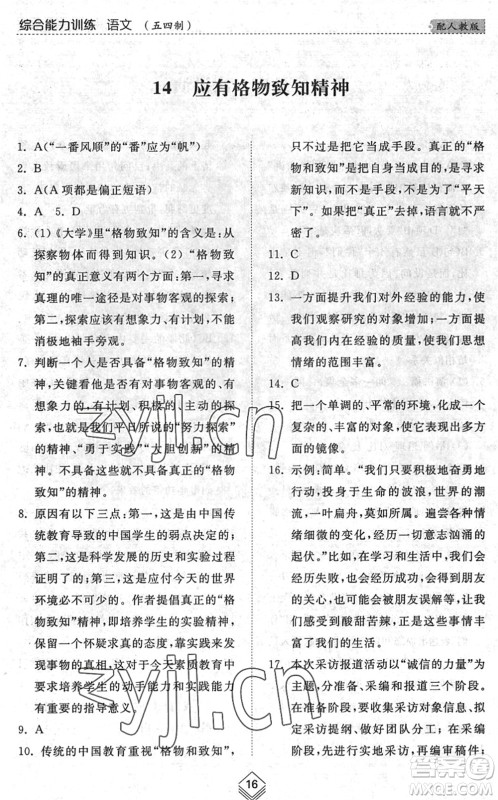 综合能力训练　语文　（五四制）
配人教版
14　应有格物致知精神
1. A(“一番风顺”的“番”应为“帆”)
2. B
3. A(A项都是偏正短语)
4. A　5. D
6. (1)《大学》里“格物致知”的含义是:从
探察物体而得到知识。(2)“格物致
知”的真正意义有两个方面:第一,寻求
真理的唯一途径是对事物客观的探索;
第二,探索应该有想象力、有计划,不能
消极地袖手旁观。
7. 判断一个人是否具备“格物致知”的精
神,就要看他是否具有对事物客观的、有
想象力的,有计划、积极的、主动的探
索,也就是我们平日所说的“努力探索”
的精神、“勇于实践”“大胆创新”的精
神。具备这样的精神才是真正的“格物
致知”的精神。
8. 原因有以下三点:第一,这是由中国传
统教育导致的中国学生的弱点决定的;
第二,这是科学发展的历史和具体实验
证明了的;第三,这是应付今天的世界
环境必不可少的。作者提倡真正的“格
物致知”精神,即培养学生的实验精神,
保留一个怀疑求真的态度,靠实践来发
现事物的真相,这对于今天素质教育中
要求培养学生的动手能力和实践能力
有重大的现实意义。
9. A
10. 传统的中国教育重视“格物和致知”,
只不过是把它当成手段。真正的“格
物和致知”是把它当成目的,就是寻求
新知识,而不是寻求手段,为了“平天
下”。如果把“真正”去掉,语言就不严
密了。
11. C　12. D
13. 一方面提升我们对外经验的能力,使
我们观察研究的对象增加;一方面提
高我们内在的敏感性,使我们思想
情绪的范围丰富。
14. B
15. 把一个单调的、平常的环境,化成一个
复杂的、丰富的对象,成为思想上多方
面的镜像。
16. 示例:简洁。“我们只要积极地奋勇地
行动,投身于生命的波浪,世界的潮
流,一叶扁舟,莫知所属,尝遍着各色
情绪细微的弦音,经历着一切意志汹涌
的起伏”。比如,在学习和生活中,我
们遇到失败和挫折,也会得到朋友的
关心和同情。和朋友谈心时,会感受
到成功者的酸甜苦辣,这样我们的生
活经验就会丰富,情绪感觉就会复杂。
17. 本次采访报道活动以“诚信的力量”为主
题,共有准备、采编和报道三个阶段。
在准备阶段,收集采访对象信息,并拟
定采访提纲。在采编阶段,采访相关
人员,并进行采访后续工作:编审稿件;